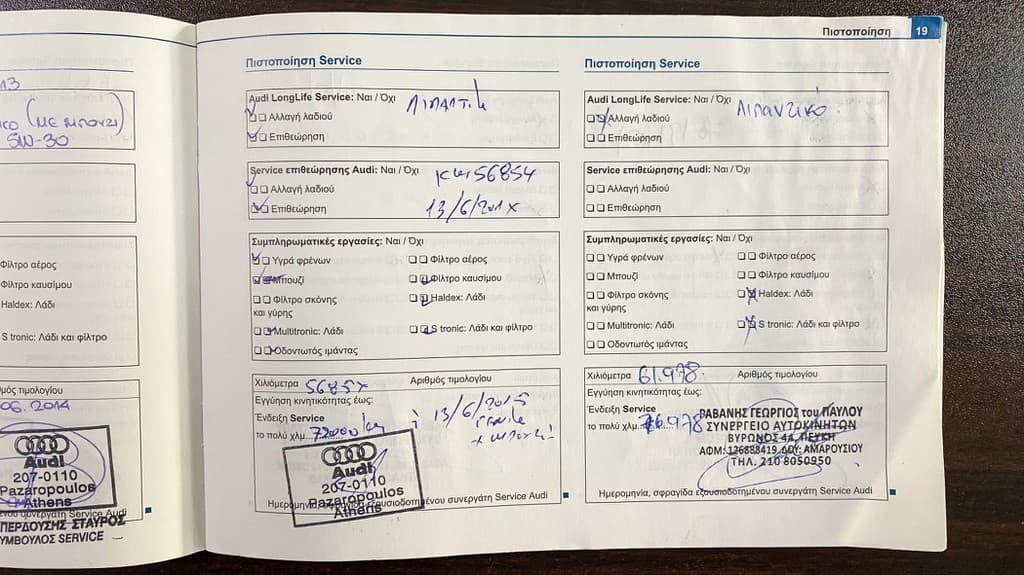 13
(ΜΕ ΜΠΟΥΖΙ)
5W-30
Φίλτρο αέρος
Φίλτρο καυσίμου
Haldex: Λάδι
S tronic: Λάδι και φίλτρο
μός τιμολογίου
06. 2014
Audi
207-0110
Pazaropoulos
Athens
ένου συνεργάτη Service Audi
ΠΕΡΔΟΥΣΗΣ ΣΤΑΥΡΟΣ
ΥΜΒΟΥΛΟΣ SERVICE
Πιστοποίηση 19
Πιστοποίηση Service
Audi LongLife Service: Ναι / Όχι
Αλλαγή λαδιού
Επιθεώρηση
Service επιθεώρησης Audi: Ναι / Όχι
56854
Αλλαγή λαδιού
Επιθεώρηση
13/6/201
Συμπληρωματικές εργασίες: Ναι / Όχι
Υγρά φρένων
Φίλτρο αέρος
Μπουζί
Φίλτρο καυσίμου
Φίλτρο σκόνης
και γύρης
Haldex: Λάδι
Multitronic: Λάδι
S tronic: Λάδι και φίλτρο
Οδοντωτός ιμάντας
Χιλιόμετρα
Αριθμός τιμολογίου
Εγγύηση κινητικότητας έως:
Ένδειξη Service
13/6/2015
το πολύ χλμ.
Audi
207-0110
Pazaropoulos
Athens
Ημερομηνία, σφραγίδα εξουσιοδοτημένου συνεργάτη Service Audi
Πιστοποίηση Service
Audi LongLife Service: Ναι / Όχι
Λιπαντικό
Αλλαγή λαδιού
Επιθεώρηση
Service επιθεώρησης Audi: Ναι / Όχι
Αλλαγή λαδιού
Επιθεώρηση
Συμπληρωματικές εργασίες: Ναι / Όχι
Υγρά φρένων
Φίλτρο αέρος
Μπουζί
Φίλτρο καυσίμου
Φίλτρο σκόνης
και γύρης
Haldex: Λάδι
Multitronic: Λάδι
S tronic: Λάδι και φίλτρο
Οδοντωτός ιμάντας
Χιλιόμετρα 61.978.
Αριθμός τιμολογίου
Εγγύηση κινητικότητας έως:
Ένδειξη Service
το πολύ χλμ. 76.978
ΡΑΒΑΝΗΣ ΓΕΩΡΓΙΟΣ του ΠΑΥΛΟΥ
ΣΥΝΕΡΓΕΙΟ ΑΥΤΟΚΙΝΗΤΩΝ
ΒΥΡΩΝΟΣ 4Α, ΠΕΥΚΗ
ΑΦΜ: 126888419 ΔΟΥ: ΑΜΑΡΟΥΣΙΟΥ
ΤΗΛ. 210 8050950
Ημερομηνία, σφραγίδα εξουσιοδοτημένου συνεργάτη Service Audi